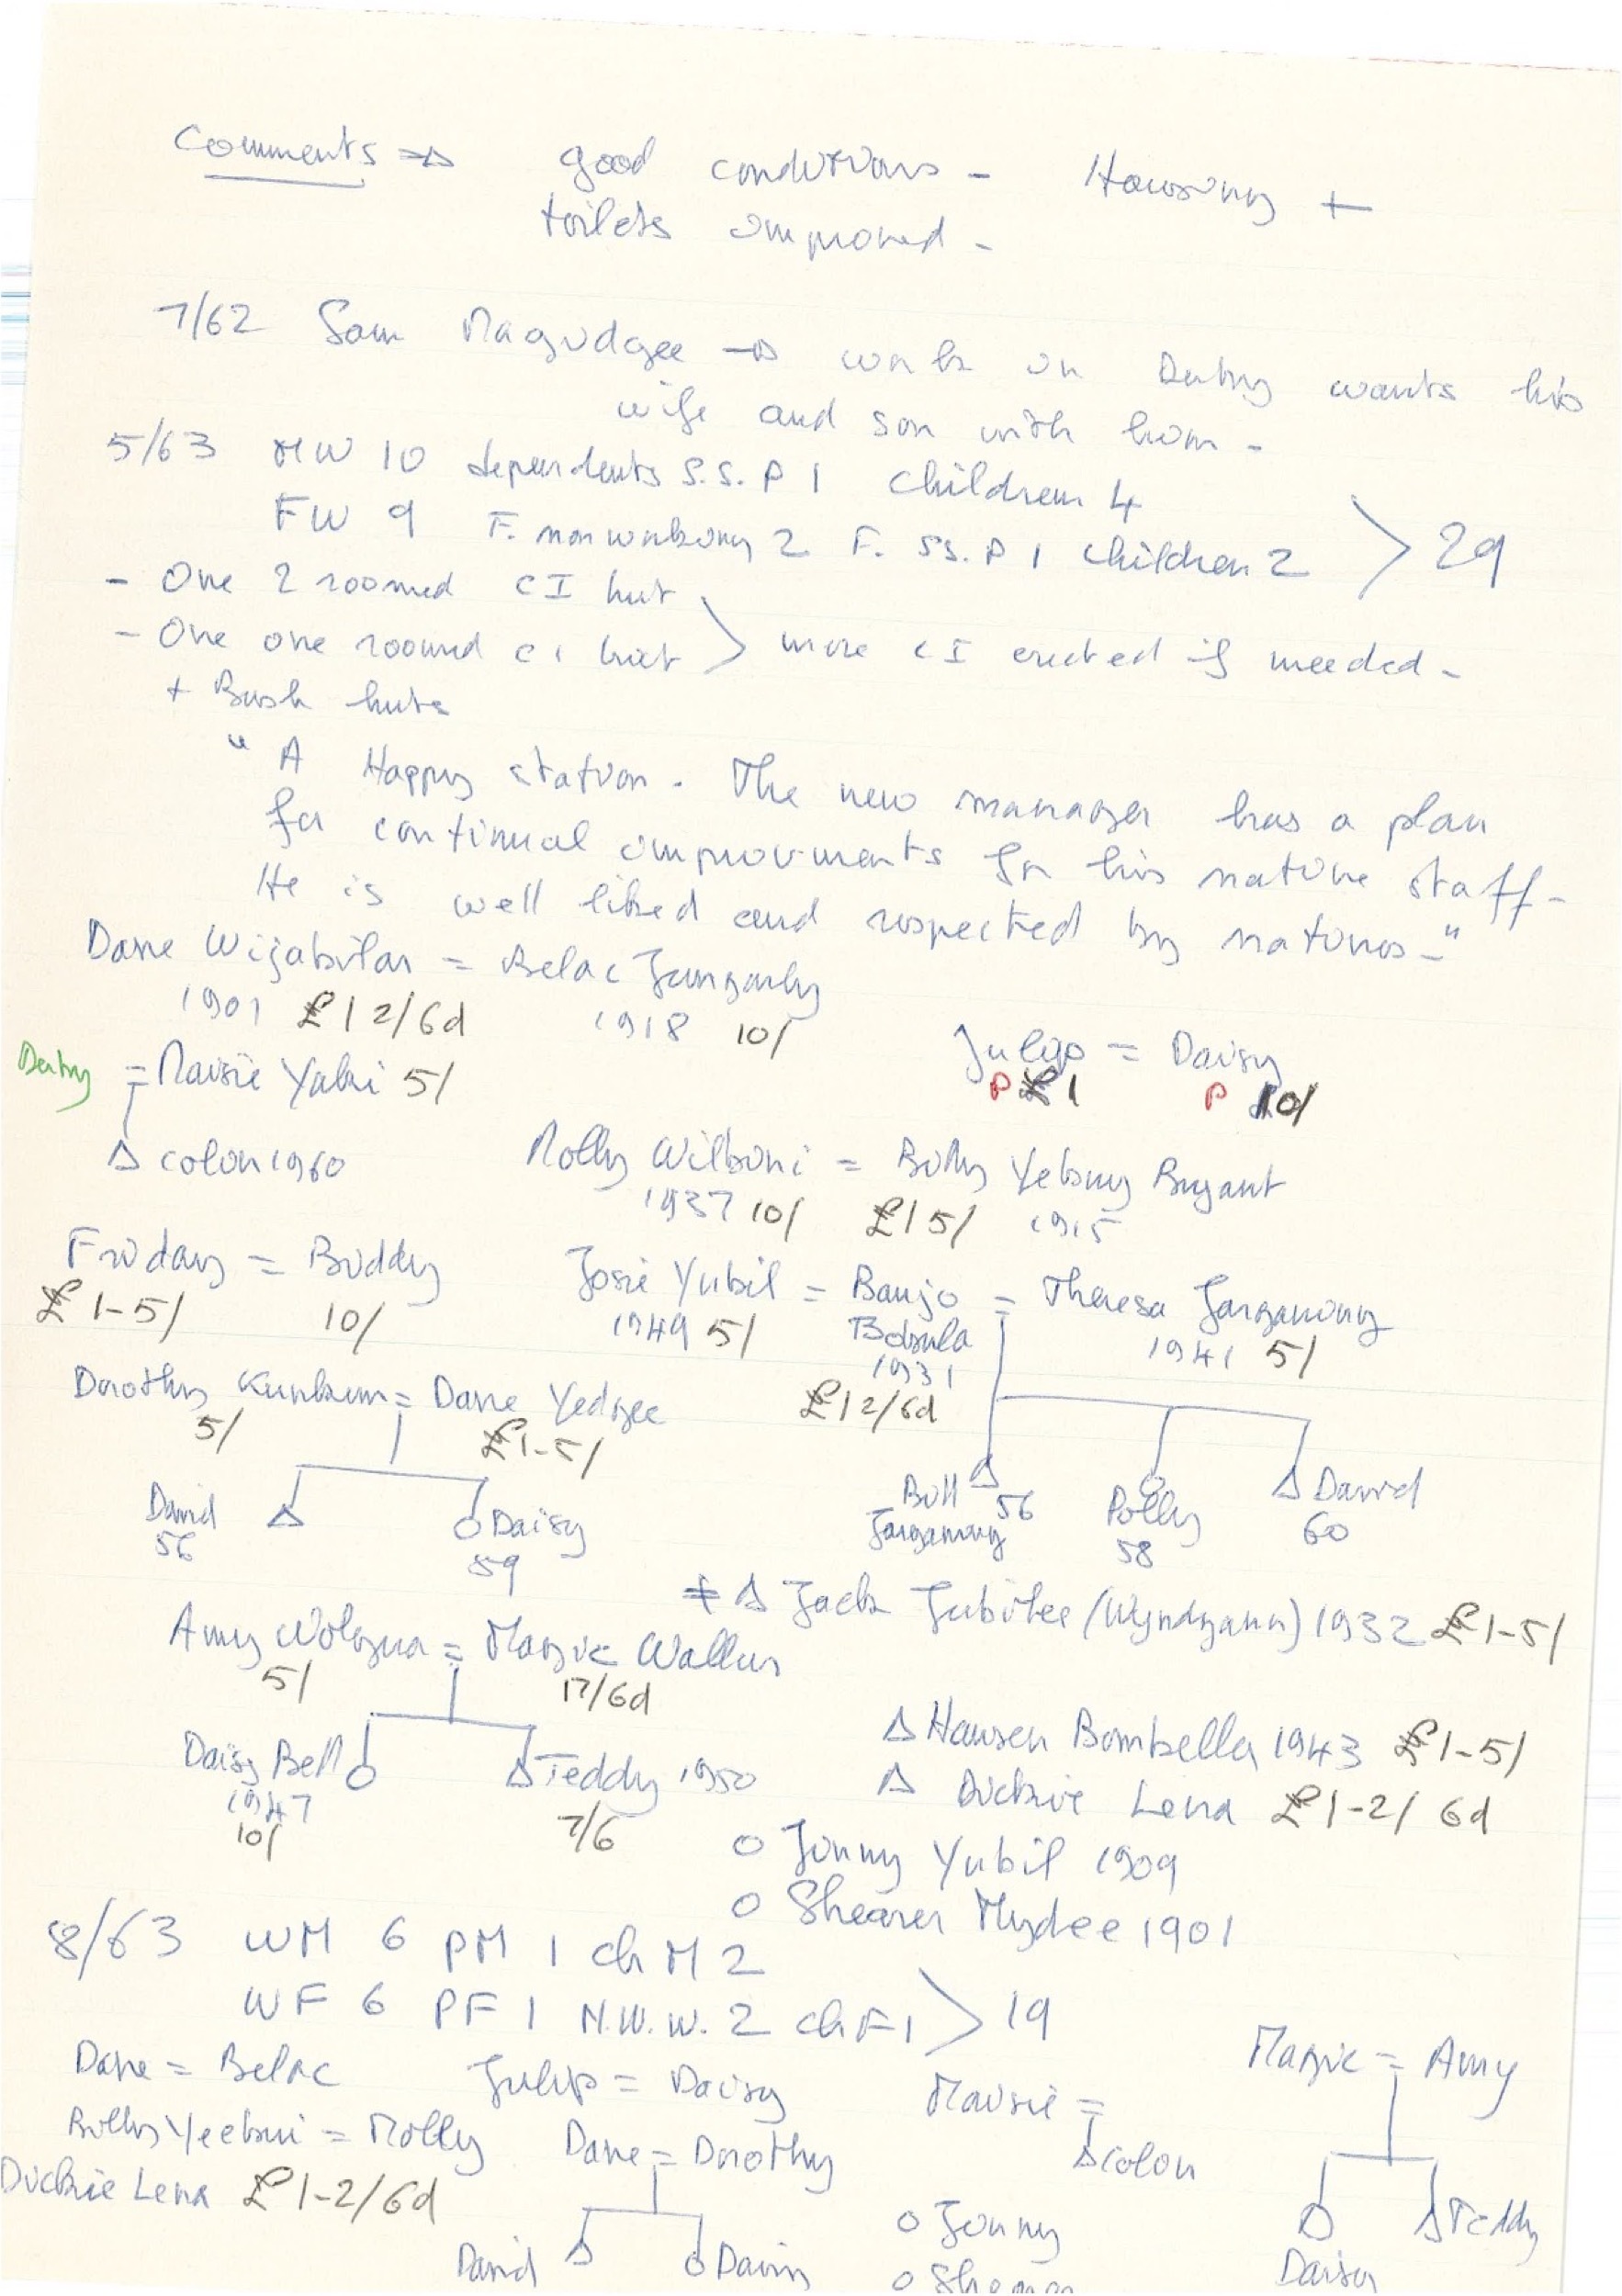 Comments → good conditions - Housing +
toilets improved -
7/62 Sam Magudgee → work on Derby wants his
wife and son with him -
5/63 MW 10 dependents S.S. P 1 children 4
FW 9 F. non working 2 F. SS. P 1 children 2 > 29
- One 2 roomed CI hut
- One one roomed CI hut > more CI erected if needed -
+ Bush huts
" A Happy station. The new manager has a plan
for continual improvements for his native staff -
He is well liked and respected by natives - "
Dave Wijabilar = Belac Jungarly
1901 £1 2/6d 1918 10/
Julip = Daisy
P £1 P 10/
Derby = Maisie Yabi 5/
Δ Colin 1960
Molly Wilboni = Billy Yebuy Bryant
1937 10/ £1 5/ 1915
Friday = Biddy
£1-5/ 10/
Josie Yubil = Banjo = Theresa Jarganony
1949 5/ Bobula 1941 5/
1931
£1 2/6d
Dorothy Kunkum = Dave Yedgee
5/ £1-5/
Bill Δ 56 Polly Δ David
Jarganany 58 60
David Δ O Daisy
56 59
Δ Jack Jubilee (Wyndyann) 1932 £1-5/
Amy Wologua = Magic Wallun
5/ 17/6d
Δ Hausen Bombella 1943 £1-5/
Daisy Bell O Δ Teddy 1950
1947 10/ 7/6
Δ Dickie Lena £1-2/6d
O Jinny Yubil 1909
O Shearer Mydee 1901
8/63 WM 6 PM 1 ch M 2
WF 6 PF 1 N.W.W. 2 ch F 1 > 19
Dave = Belac Julip = Daisy Maisie = Magic = Amy
Δ Colin
Billy Yeebui = Molly Dave = Dorothy
Dickie Lena £1-2/6d
O Jinny O Δ Teddy
David Δ O Daisy O Daisy